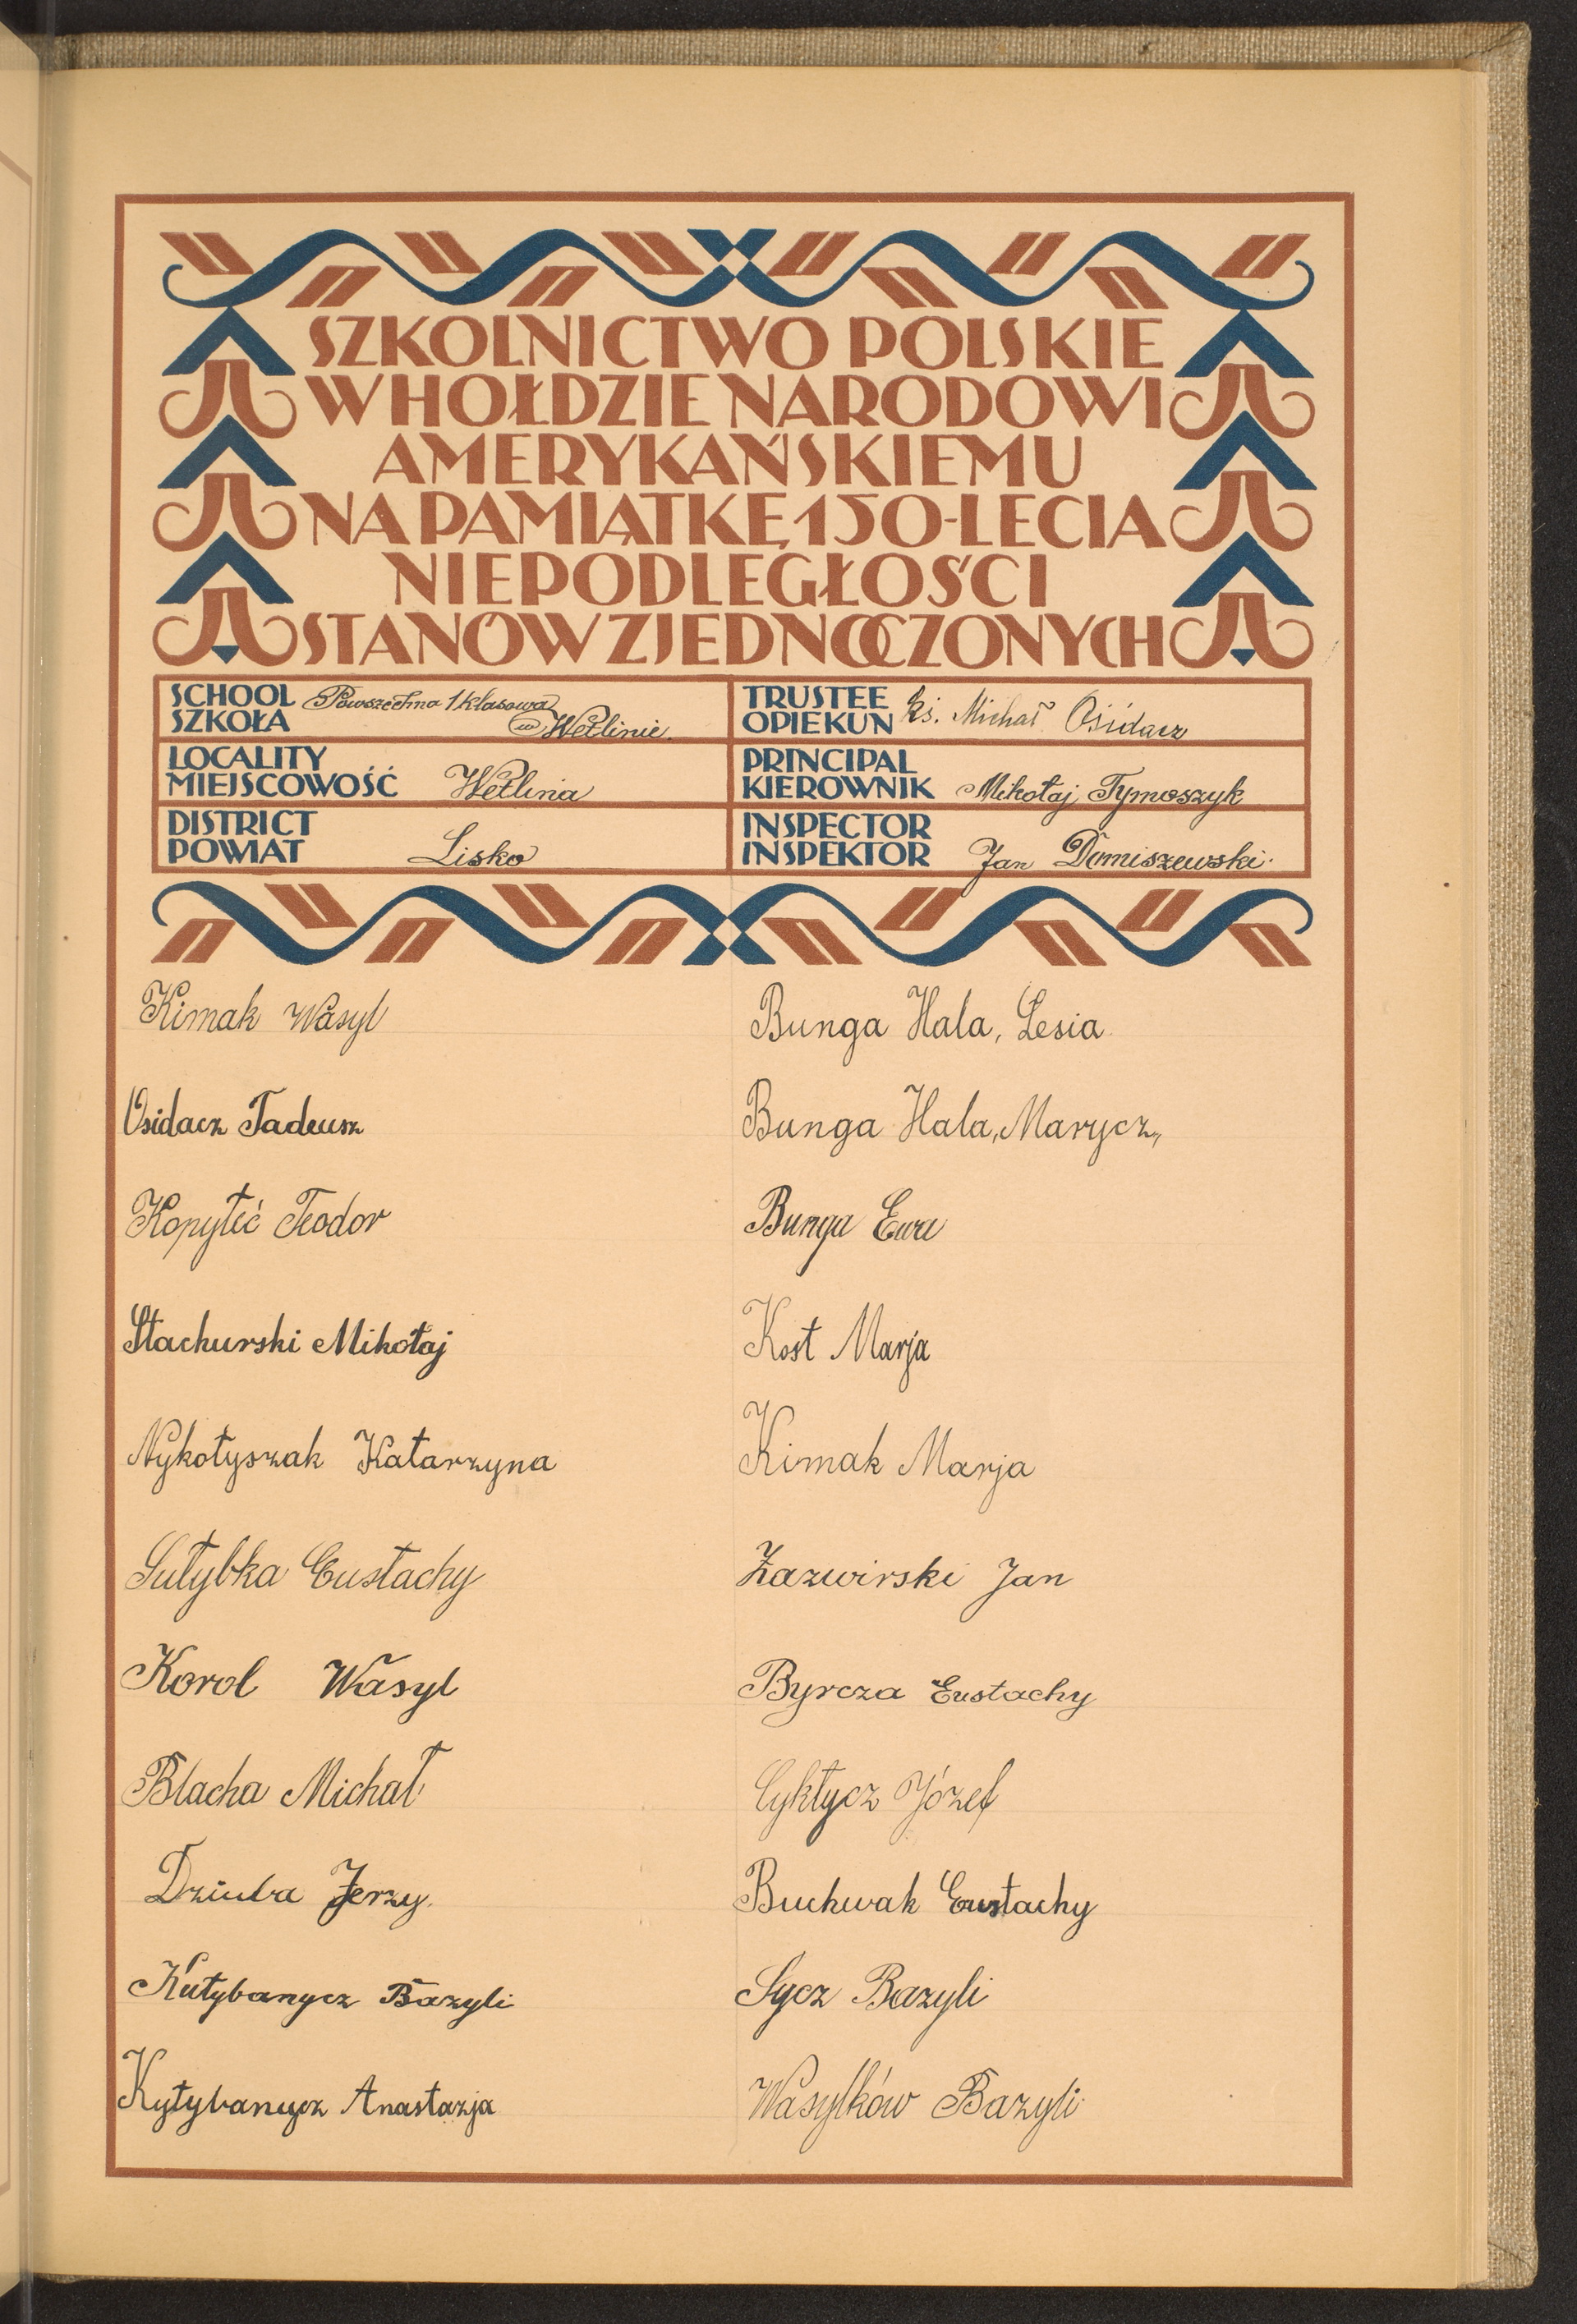 SZKOLNICTWO POLSKIE
W HOŁDZIE NARODOWI
AMERYKAŃSKIEMU
NA PAMIĄTKĘ 150-LECIA
NIEPODLEGŁOŚCI
STANÓW ZJEDNOCZONYCH
SCHOOL
SZKOŁA
Powszechna 1 klasowa
w Wetlinie.
TRUSTEE
OPIEKUN
ks. Michał Osidacz
LOCALITY
MIEJSCOWOŚĆ
Wetlina
PRINCIPAL
KIEROWNIK
Mikołaj Tymoszyk
DISTRICT
POWIAT
Lisko
INSPECTOR
INSPEKTOR
Jan Domiszewski.
Kimak Wasyl
Osidacz Tadeusz
Kopyteć Teodor
Stachurski Mikołaj
Nykołyszak Katarzyna
Sułybka Eustachy
Korol Wasyl
Blacha Michał
Dziuba Jerzy.
Kutybanycz Bazyli
Kytybanycz Anastazja
Bunga Hala, Lesia
Bunga Hala, Marycz,,
Bunga Ewa
Kost Marja
Kimak Marja
Zazwirski Jan
Byrcza Eustachy
Cyktycz Józef
Buchwak Eustachy
Sycz Bazyli
Wasylków Bazyli